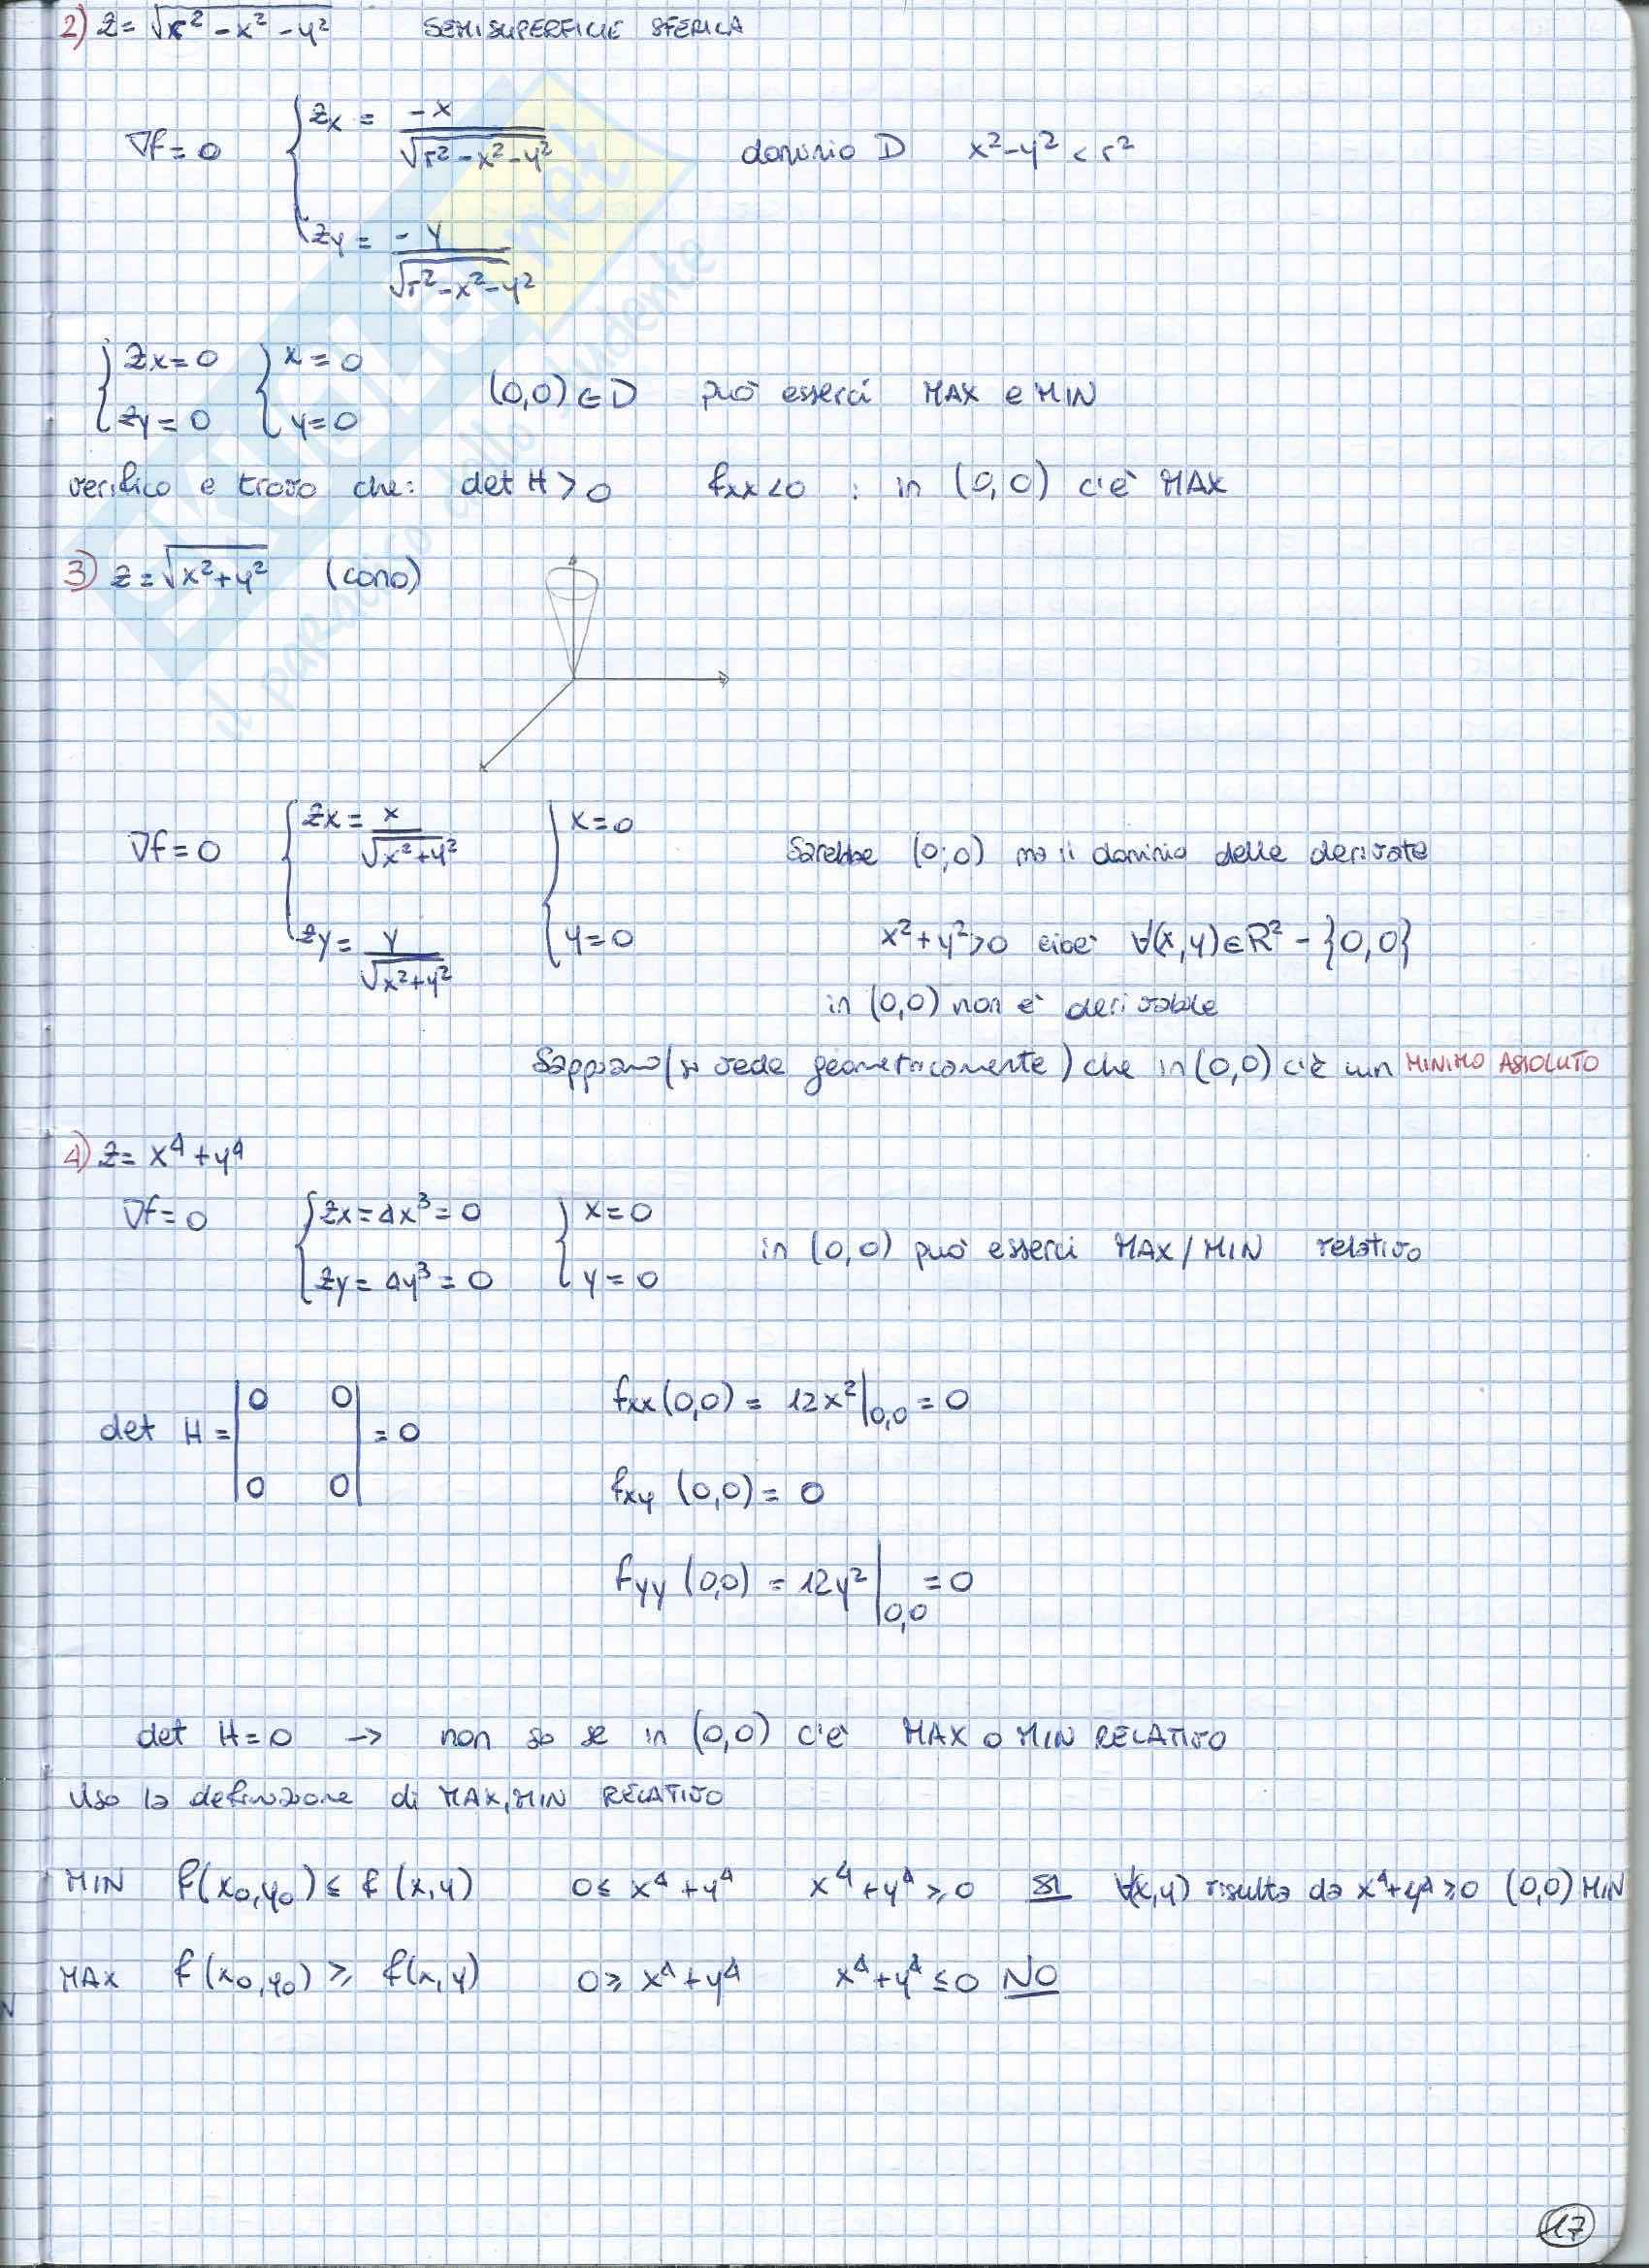 2) z = √(r² - x² - y²) SEMISUPERFICIE SFERICA
∇f = 0 { zx = -x / √(r² - x² - y²) dominio D x² - y² < r²
zy = -y / √(r² - x² - y²)
{ zx = 0 { x = 0 (0,0) ∈ D può esserci MAX e MIN
zy = 0 y = 0
verifico e trovo che: det H > 0 fxx < 0 : in (0,0) c'è MAX
3) z = √(x² + y²) (cono)
∇f = 0 { zx = x / √(x² + y²) { x = 0 Sarebbe (0;0) ma il dominio delle derivate
zy = y / √(x² + y²) y = 0 x² + y² > 0 cioè ∀(x,y) ∈ R² - {0,0}
in (0,0) non è derivabile
Sappiamo (si vede geometricamente) che in (0,0) c'è un MINIMO ASSOLUTO
4) z = x⁴ + y⁴
∇f = 0 { zx = 4x³ = 0 { x = 0 in (0,0) può esserci MAX/MIN relativo
zy = 4y³ = 0 y = 0
det H = | 0 0 | = 0 fxx (0,0) = 12x² |0,0 = 0
| 0 0 | fxy (0,0) = 0
fyy (0,0) = 12y² |0,0 = 0
det H = 0 → non so se in (0,0) c'è MAX o MIN RELATIVO
Uso la definizione di MAX, MIN RELATIVO
MIN f(x₀,y₀) ≤ f(x,y) 0 ≤ x⁴ + y⁴ x⁴ + y⁴ ≥ 0 SI ∀(x,y) risulta da x⁴ + y⁴ ≥ 0 (0,0) MIN
MAX f(x₀,y₀) ≥ f(x,y) 0 ≥ x⁴ + y⁴ x⁴ + y⁴ ≤ 0 NO
17